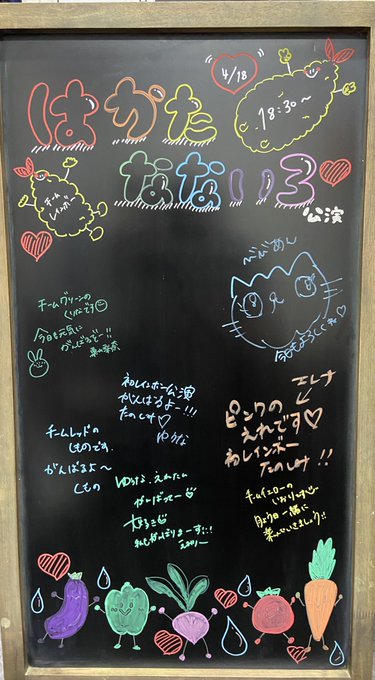 4/18
18:30～
はかた
なないろ
公演
チーム
レインボー
べべめん
今日もよろしくね♡
チームグリーンの
くりなです
今日も元気に
がんばるぞー!!
初レインボー公演
がんばるよー!!!
たのしみ♡
ゆうな
エレナ
ピンクの
えれです♡
初レインボー
たのしみ!!
チームレッドの
しものです.
がんばるよ～
しもの
ゆうな、えれたん
がんばってー
大好き
私もがんばりまーす!!
チームイエローの
いおりです
今日一緒に
楽しみましょう!!